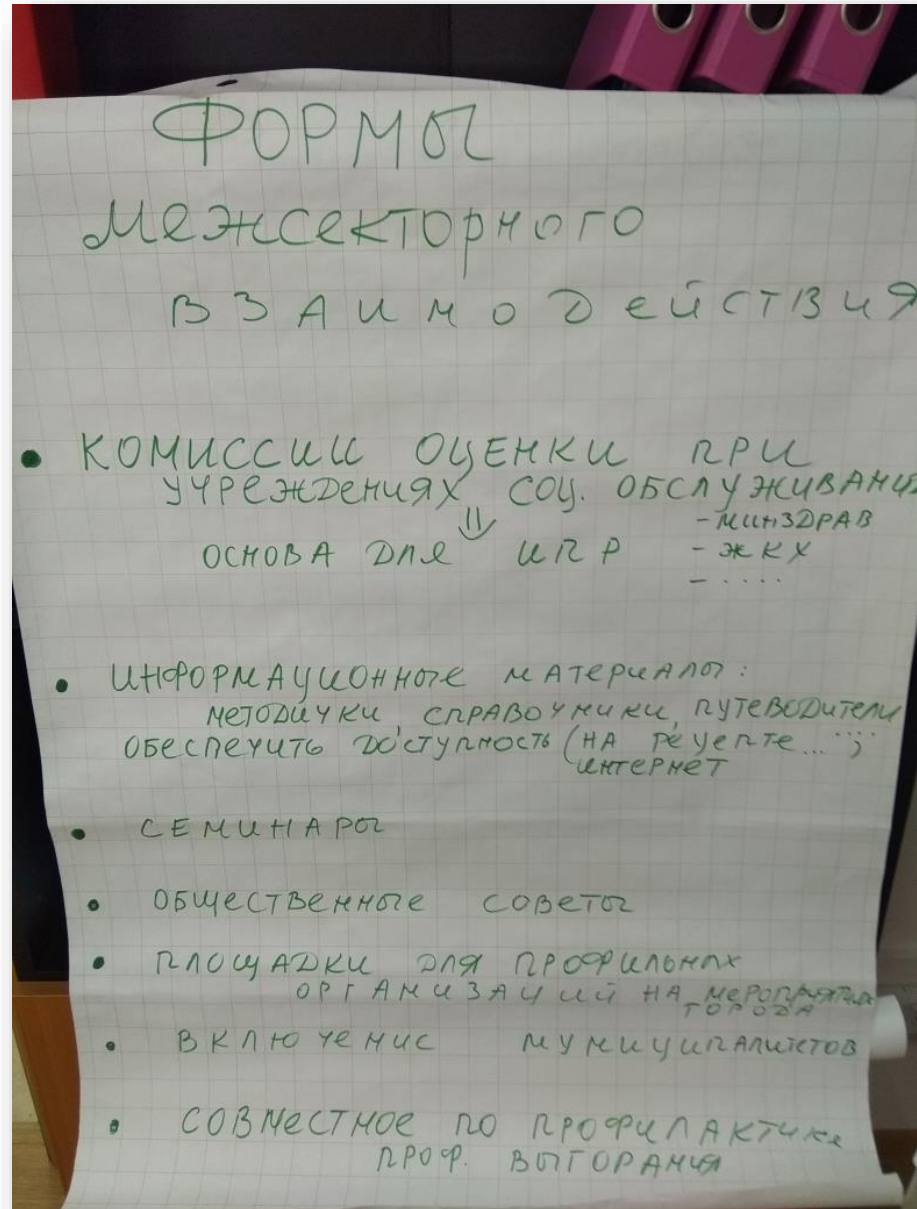 ФОРМЫ
МЕЖСЕКТОРНОГО
ВЗАИМОДЕЙСТВИЯ
• КОМИССИИ ОЦЕНКИ ПРИ
УЧРЕЖДЕНИЯХ СОЦ. ОБСЛУЖИВАНИЯ
⇓ - МИНЗДРАВ
ОСНОВА ДЛЯ ИПР - ЖКХ
- ....
• ИНФОРМАЦИОННЫЕ МАТЕРИАЛЫ:
МЕТОДИЧКИ, СПРАВОЧНИКИ, ПУТЕВОДИТЕЛИ ....
ОБЕСПЕЧИТЬ ДОСТУПНОСТЬ (НА РЕЦЕПТЕ... ;
ИНТЕРНЕТ
• СЕМИНАРЫ
• ОБЩЕСТВЕННЫЕ СОВЕТЫ
• ПЛОЩАДКИ ДЛЯ ПРОФИЛЬНЫХ
ОРГАНИЗАЦИЙ НА МЕРОПРИЯТИЯХ
ГОРОДА
• ВКЛЮЧЕНИЕ МУНИЦИПАЛИТЕТОВ
• СОВМЕСТНОЕ ПО ПРОФИЛАКТИКЕ
ПРОФ. ВЫГОРАНИЯ